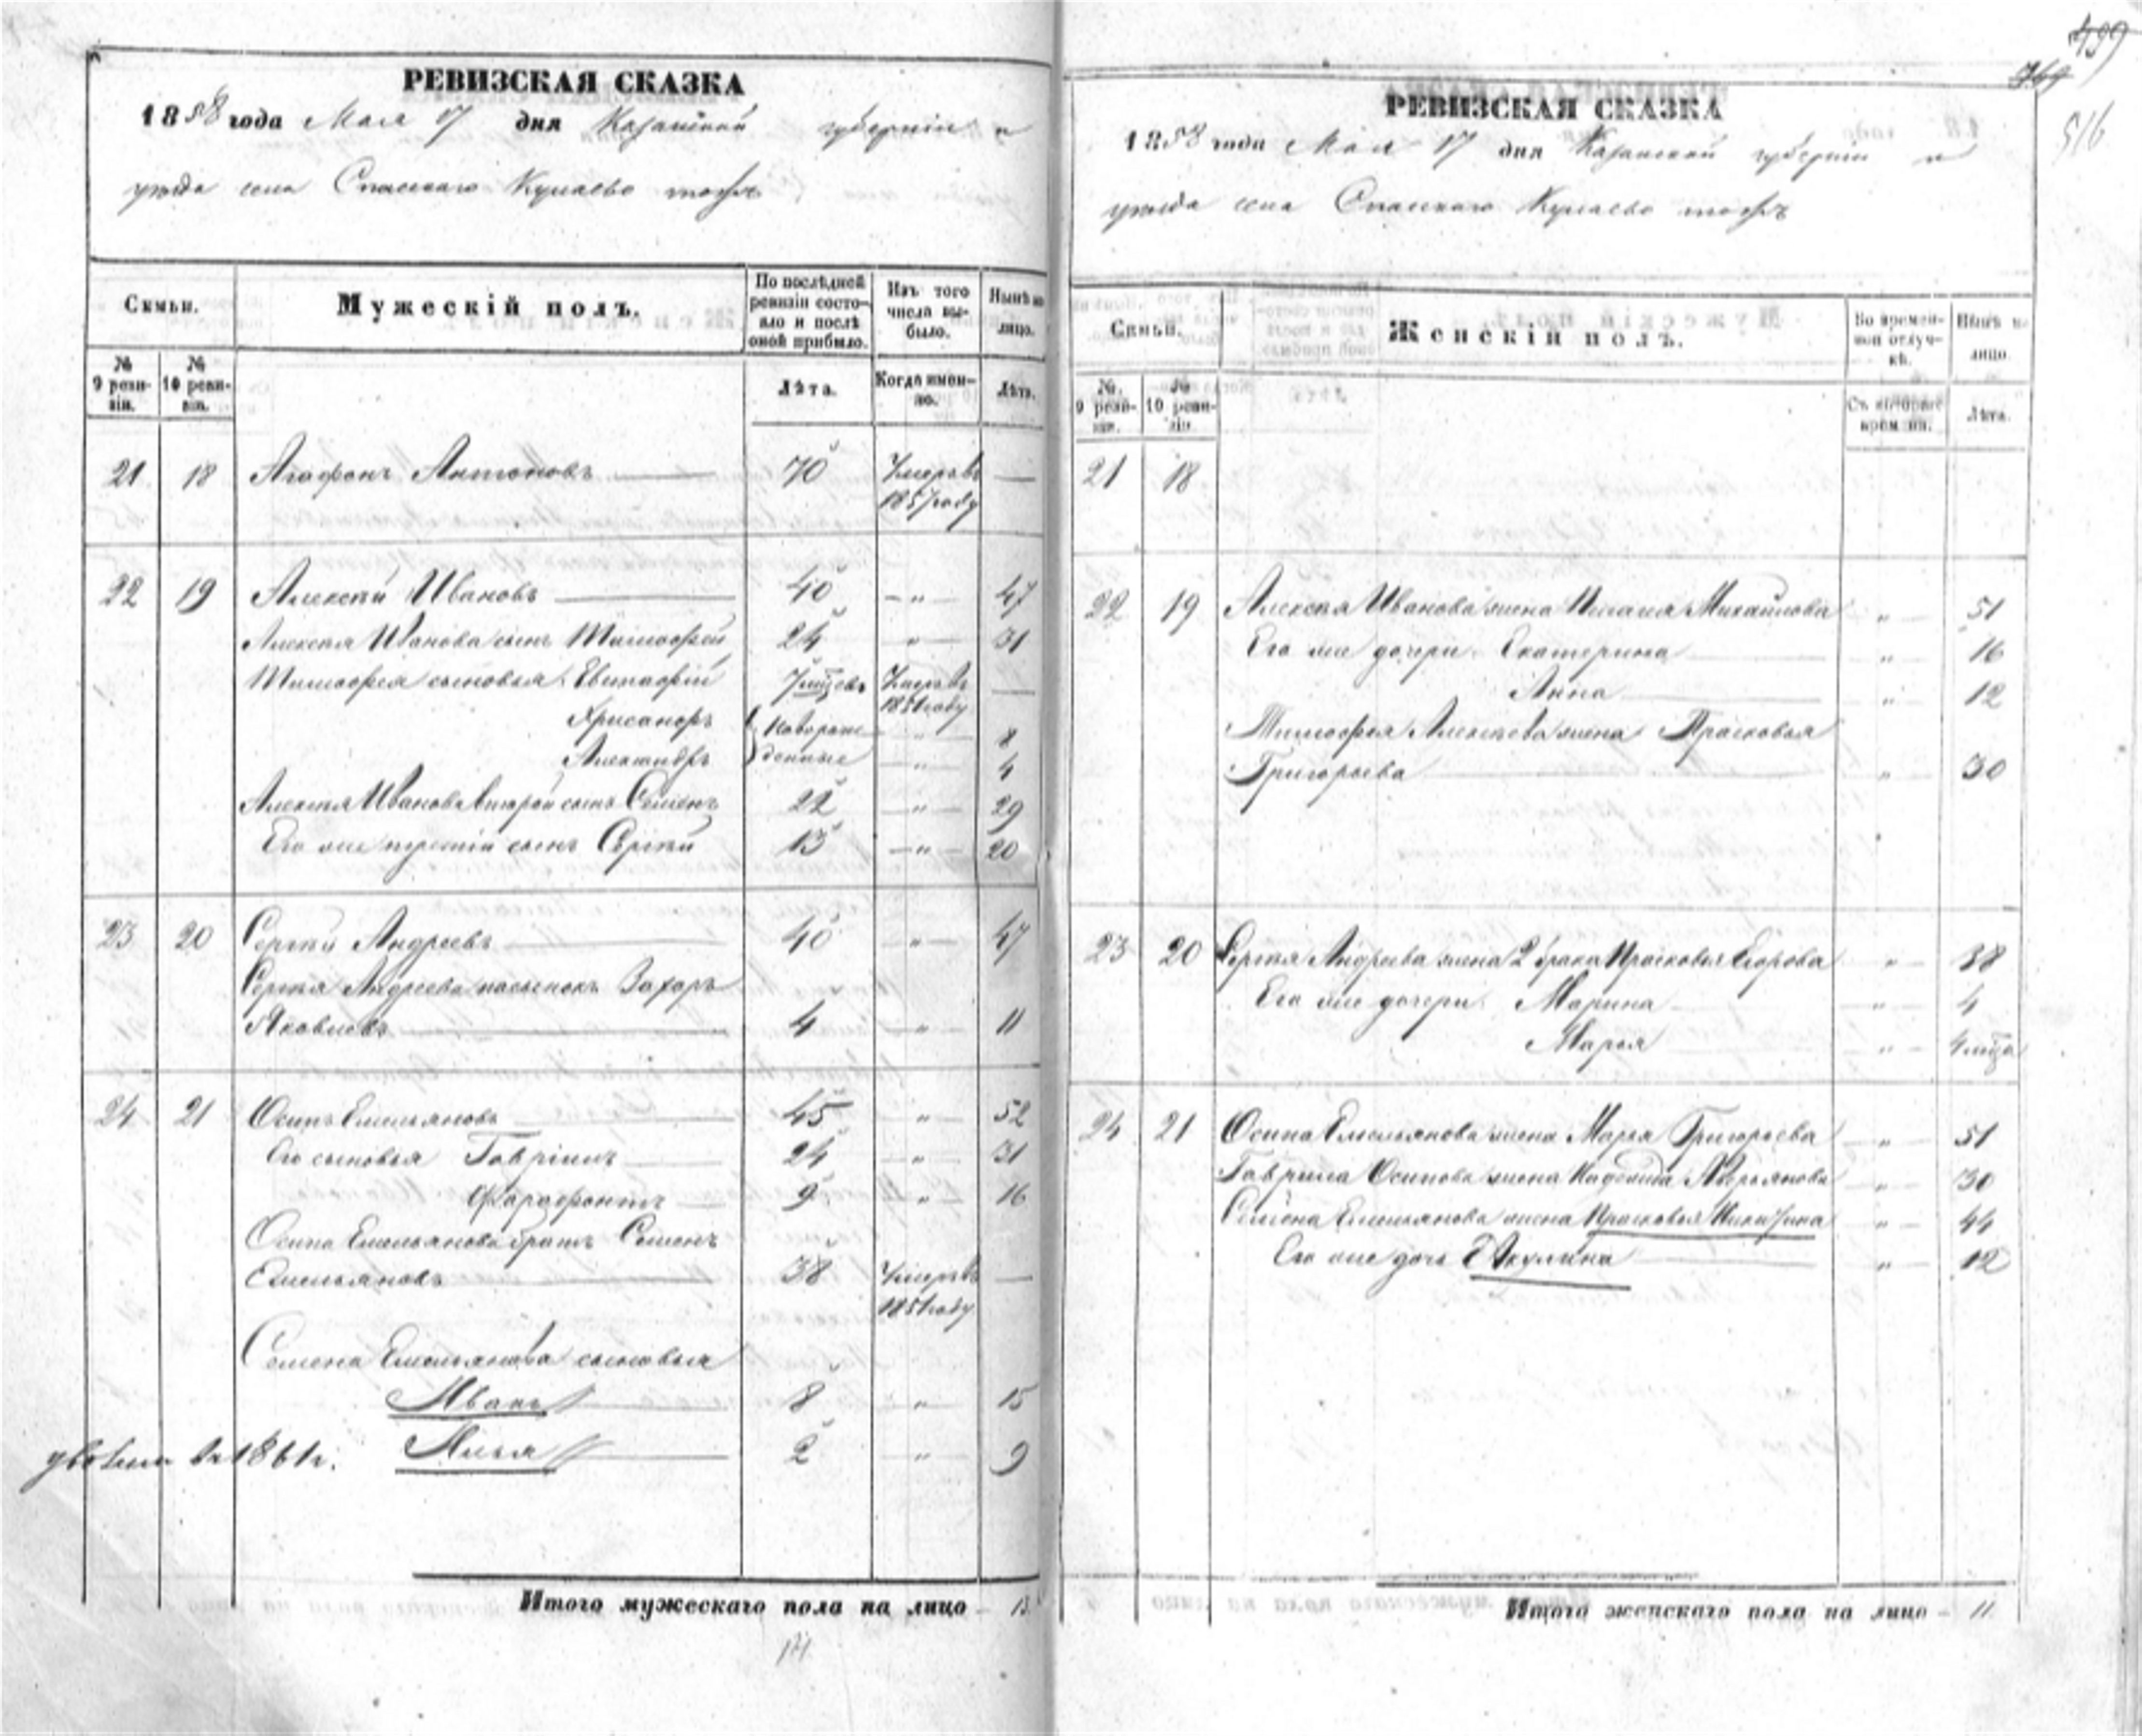 РЕВИЗСКАЯ СКАЗКА
1858 года Мая 17 дня Казанской губернии и
уезда села Спаскаго Кулаево тожъ
Семьи.
Мужескій полъ.
По послѣдней ревизіи состояло и послѣ оной прибыло.
Изъ того числа выбыло.
Нынѣ на лицо.
№ 9 ревизіи.
№ 10 ревизіи.
Лѣта.
Когда именно.
Лѣта.
21 18 Агафонъ Антоновъ 70 Умеръ въ —
1857 году
22 19 Алексѣй Ивановъ 40 — " — 47
Алексѣя Иванова сынъ Тимофей 24 " — 31
Тимофея сыновья Евитафій 7 мцовъ Умеръ въ —
1851 году
Хрисанфъ новорож- " — 8
Александръ денные — " — 4
Алексѣя Иванова второй сынъ Семенъ 22 — " — 29
Его же третій сынъ Сергѣй 13 — " — 20
23 20 Сергѣй Андреевъ 40 " — 47
Сергѣя Андреева пасынокъ Захаръ
Яковлевъ 4 — " — 11
24 21 Осипъ Емельяновъ 45 " — 52
Его сыновья Гаврілъ 24 — " — 31
Фарафонтъ 9 " — 16
Осипа Емельянова братъ Семенъ
Емельяновъ 38 Умеръ въ —
1851 году
Семена Емельянова сыновья
Иванъ 8 " 15
1861 г. Илья 2 " — 9
Итого мужескаго пола на лицо — 13
499
516
РЕВИЗСКАЯ СКАЗКА
1858 года Мая 17 дня Казанской губерніи и
уезда села Спаскаго Кулаево тожъ
Семьи.
Женскій полъ.
Во временной отлучкѣ.
Нынѣ на лицо.
№ 9 ревизіи.
№ 10 ревизіи
Съ котораго времени.
Лѣта.
21 18
22 19 Алексѣя Иванова жена Михайлова " — 51
Его же дочери Екатерина " — 16
Анна " — 12
Тимофея Алексѣева жена Прасковья
Григорьева " — 30
23 20 Сергѣя Андреева жена 2 брака Прасковья Егорова " — 38
Его же дочери Марина — " — 4
Марья — " — 4 мца
24 21 Осипа Емельянова жена Марья Григорьева — " — 51
Гаврила Осипова жена Надежда Аверьянова — " — 30
Семена Емельянова жена Прасковья Никитина — " — 44
Его же дочь Акулина — " — 12
Итого женскаго пола на лицо — 11